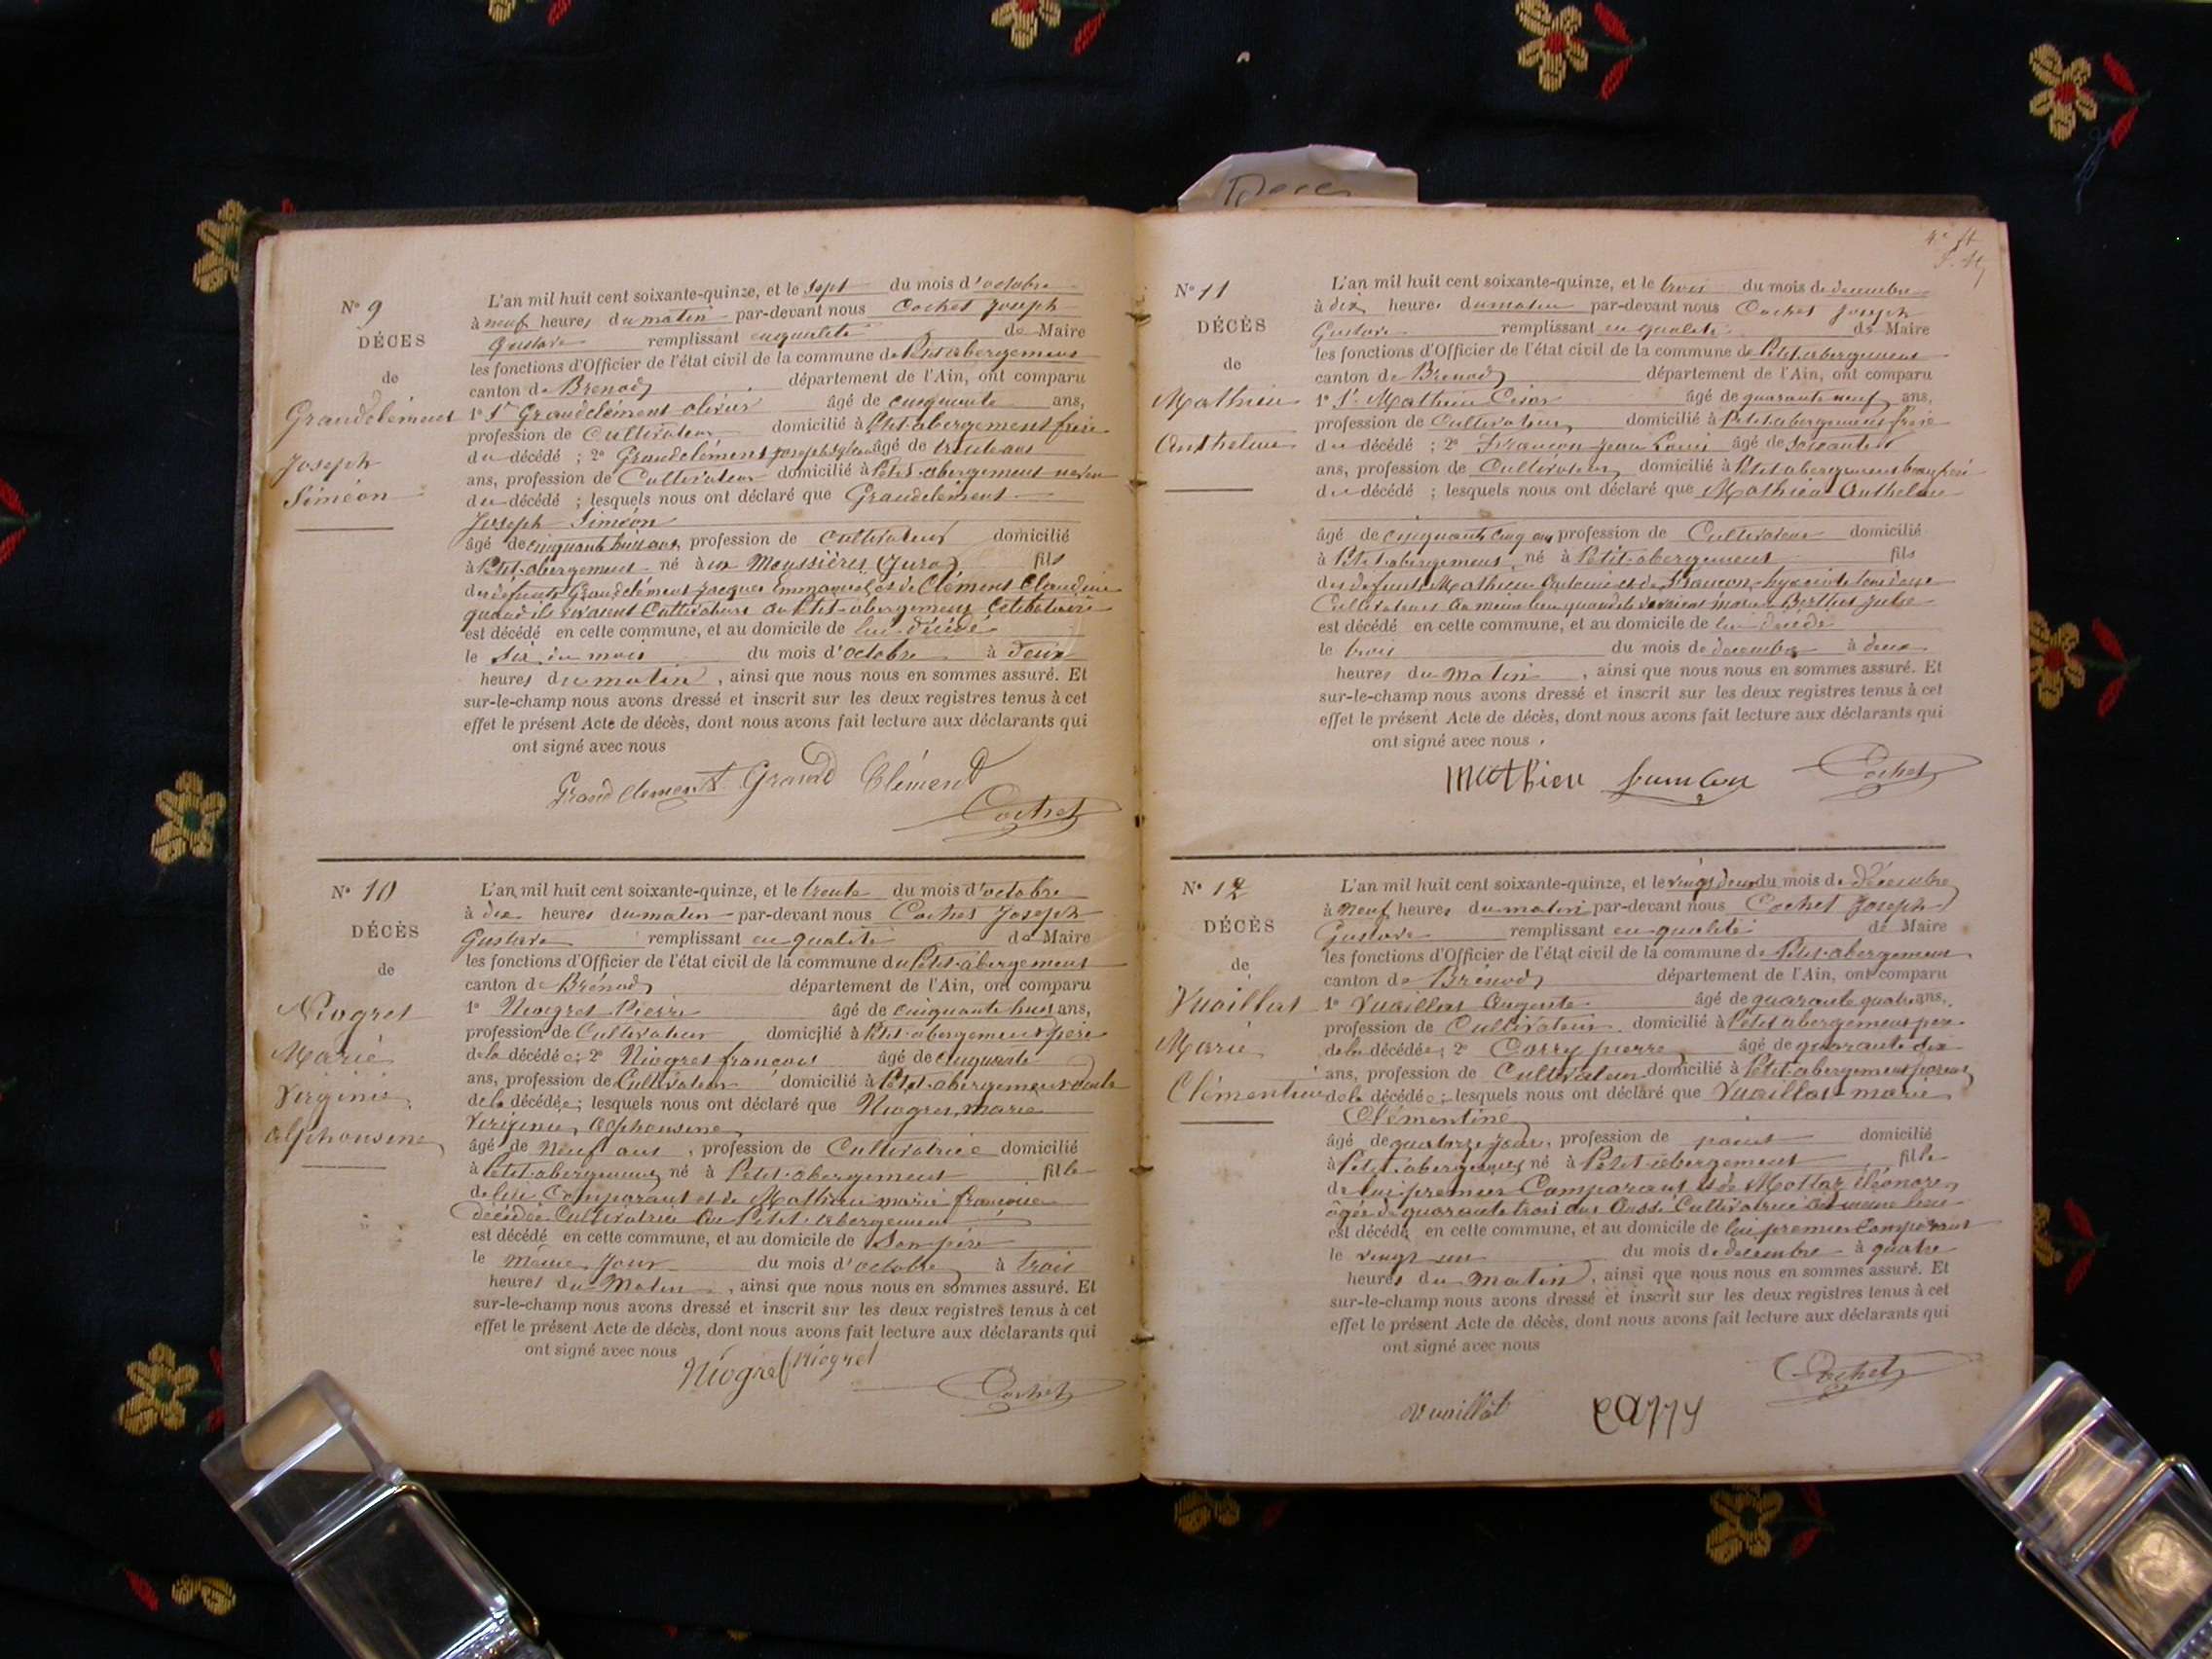 Nº 9
DÉCES
de
Grandclément
Joseph
Siméon
L'an mil huit cent soixante-quinze, et le sept du mois d'octobre
à neuf heures du matin par-devant nous Cochet Joseph
Gustave remplissant en qualité de Maire
les fonctions d'Officier de l'état civil de la commune de Petit abergement
canton de Brenod département de l'Ain, ont comparu
1º Sr Grandclément olivier âgé de cinquante ans,
profession de Cultivateur domicilié à Petit-abergement frère
du décédé ; 2º Grandclément joseph âgé de trente ans
ans, profession de Cultivateur domicilié à Petit-abergement neveu
du décédé ; lesquels nous ont déclaré que Grandclément
Joseph Siméon
âgé de cinquante huit ans, profession de cultivateur domicilié
à Petit-abergement né à ux Moussières (Jura) fils
des défunts Grandclément jacques Emmanuel et de Clément Claudine
quand ils vivaient Cultivateurs au Petit-abergement Célibataire
est décédé en cette commune, et au domicile de lui décédé
le six du mois du mois d'octobre à deux
heures du matin, ainsi que nous nous en sommes assuré. Et
sur-le-champ nous avons dressé et inscrit sur les deux registres tenus à cet
effet le présent Acte de décès, dont nous avons fait lecture aux déclarants qui
ont signé avec nous
Grandclement Grand Clément
Cochet
Nº 10
DÉCÈS
de
Niogret
Marie
Virginie
alphonsine
L'an mil huit cent soixante-quinze, et le trente du mois d'octobre
à dix heures du matin par-devant nous Cochet Joseph
Gustave remplissant en qualité de Maire
les fonctions d'Officier de l'état civil de la commune du Petit-abergement
canton de Brénod département de l'Ain, ont comparu
1º Niogret Pierre âgé de cinquante huit ans,
profession de Cultivateur domicilié à Petit-abergement père
de la décédée; 2º Niogret francois âgé de cinquante
ans, profession de Cultivateur domicilié à Petit-abergement oncle
de la décédée; lesquels nous ont déclaré que Niogret marie
Virginie, alphonsine
âgé de Neuf ans, profession de Cultivatrice domicilié
à Petit-abergement né à Petit-abergement fille
de lui Comparant et de Mathieu marie françoise
décédée Cultivatrice au Petit-abergement
est décédé en cette commune, et au domicile de son père
le même jour du mois d'octobre à trois
heures du Matin, ainsi que nous nous en sommes assuré. Et
sur-le-champ nous avons dressé et inscrit sur les deux registres tenus à cet
effet le présent Acte de décès, dont nous avons fait lecture aux déclarants qui
ont signé avec nous
Niogret Niogret
Cochet
Nº 11
DÉCÈS
de
Mathieu
Anthelme
L'an mil huit cent soixante-quinze, et le trois du mois de decembre
à dix heures du matin par-devant nous Cochet Joseph
Gustave remplissant en qualité de Maire
les fonctions d'Officier de l'état civil de la commune de Petit abergement
canton de Brenod département de l'Ain, ont comparu
1º Sr Mathieu César âgé de quarante neuf ans,
profession de Cultivateur domicilié à Petit abergement frère
du décédé ; 2º Francon Jean Louis âgé de soixante
ans, profession de Cultivateur domicilié à Petit abergement beau frère
du décédé ; lesquels nous ont déclaré que Mathieu Anthelme
âgé de cinquante cinq ans profession de Cultivateur domicilié
à Petit abergement, né à Petit-abergement fils
des defunts Mathieu Antoine et de Francon hyacinte tous deux
Cultivateurs au même lieu quand ils vivaient marié à Berthet Julie
est décédé en cette commune, et au domicile de lui décédé
le trois du mois de decembre à deux
heures du Matin, ainsi que nous nous en sommes assuré. Et
sur-le-champ nous avons dressé et inscrit sur les deux registres tenus à cet
effet le présent Acte de décès, dont nous avons fait lecture aux déclarants qui
ont signé avec nous.
Mathieu francon Cochet
Nº 12
DÉCÈS
de
Vuaillat
Marie
Clémentine
L'an mil huit cent soixante-quinze, et le vingt deux du mois de décembre
à Neuf heures du matin par-devant nous Cochet Joseph
Gustave remplissant en qualité de Maire
les fonctions d'Officier de l'état civil de la commune de Petit-abergement
canton de Brénod département de l'Ain, ont comparu
1º Vuaillat Auguste âgé de quarante quatre ans,
profession de Cultivateur domicilié à Petit abergement père
de la décédée; 2º Carry pierre âgé de quarante dix
ans, profession de Cultivateur domicilié à Petit-abergement parent
de la décédée; lesquels nous ont déclaré que Vuaillat marie
Clémentine
âgé de quatorze jours, profession de point domicilié
à Petit-abergement né à Petit-abergement fille
de lui premier Comparant et de Mottaz éléonore
âgée de quarante trois ans Aussi Cultivatrice au même lieu
est décédé en cette commune, et au domicile de lui premier Comparant
le vingt un du mois de decembre à quatre
heures du matin, ainsi que nous nous en sommes assuré. Et
sur-le-champ nous avons dressé et inscrit sur les deux registres tenus à cet
effet le présent Acte de décès, dont nous avons fait lecture aux déclarants qui
ont signé avec nous
Cochet
Vuaillat carry